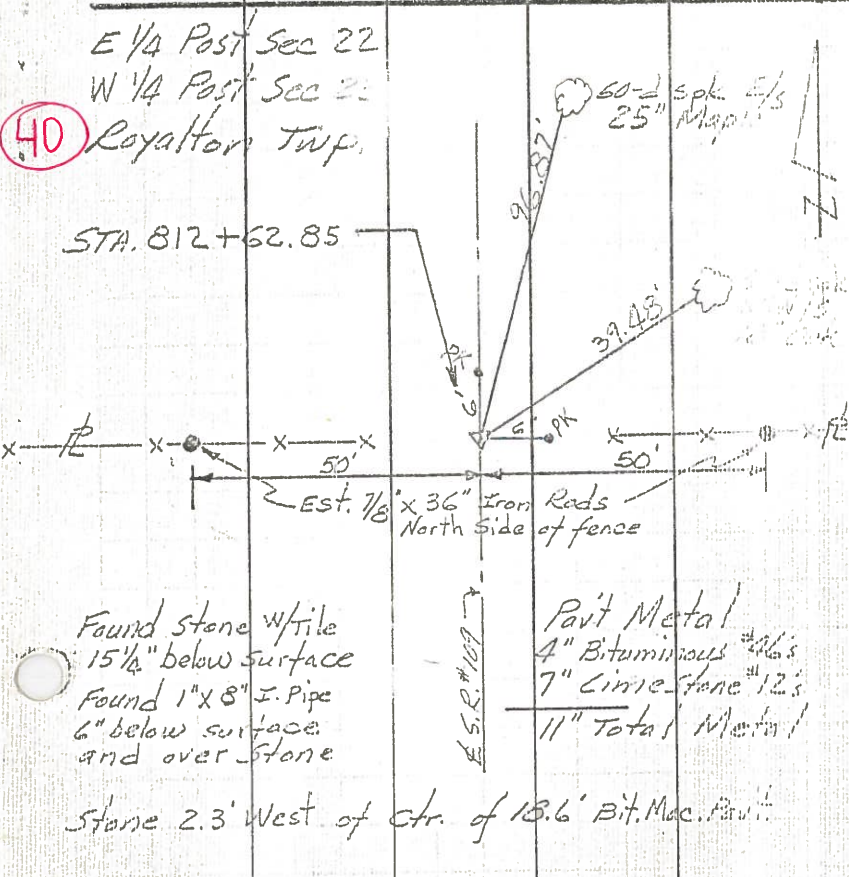 E 1/4 Post Sec 22
W 1/4 Post Sec
40
Royalton Twp.
60-d spk E/s
25" Maple
N
96.87'
STA. 812+62.85
39.48'
6'
6'
PK
50'
50'
Est. 7/8" x 36" Iron Rods
North Side of fence
Found Stone W/Tile
15 1/2" below surface
Found 1" X 8" I. Pipe
6" below surface
and over Stone
S.R. #109
Pav't Metal
4" Bituminous #46's
7" Limestone #12's
11" Total Metal
Stone 2.3' West of Ctr. of 18.6' Bit. Mac. Pav't.